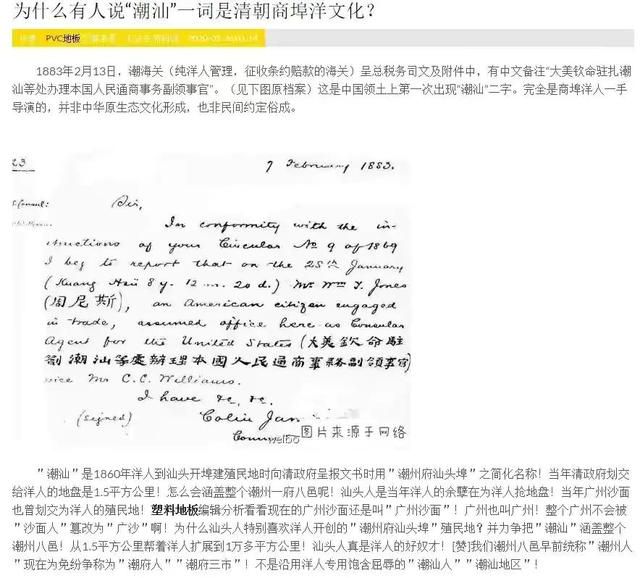 为什么有人说“潮汕”一词是清朝商埠洋文化?
PVC地板
1883年2月13日，潮海关（纯洋人管理，征收条约赔款的海关）呈总税务司文及附件中，有中文备注“大美钦命驻扎潮
汕等处办理本国人民通商事务副领事官”。（见下图原档案）这是中国领土上第一次出现“潮汕”二字。完全是商埠洋人一手
导演的，并非中华原生态文化形成，也非民间约定俗成。
7 February 1883.
Sir,
In conformity with the in-
structions of your Circular No 9 of 1869
I beg to report that on the 25th January
(Kuang Hsü 8 y. 12 m. 20 d.) Mr Wm Y. Jones
(周尼斯), an American citizen engaged
in trade, assumed office here as Consular
Agent for the United States (大美欽命駐
劄潮汕等處辦理本國人民通商事務副領事官)
vice Mr C.C. Williams.
I have &c, &c.
(signed) Colin Jam
图片来源于网络
”潮汕”是1860年洋人到汕头开埠建殖民地时向清政府呈报文书时用”潮州府汕头埠”之简化名称！当年清政府划交
给洋人的地盘是1.5平方公里！怎么会涵盖整个潮州一府八邑呢！汕头人是当年洋人的余孽在为洋人抢地盘！当年广州沙面
也曾划交为洋人的殖民地！塑料地板编辑分析看看现在的广州沙面还是叫”广州沙面”！广州也叫广州！整个广州不会被
”沙面人”篡改为”广沙”啊！为什么汕头人特别喜欢洋人开创的”潮州府汕头埠”殖民地？并力争把”潮汕”涵盖整个
潮州八邑！从1.5平方公里帮着洋人扩展到1万多平方公里！汕头人真是洋人的好奴才！[赞]我们潮州八邑早前统称”潮州人
”现在为免纷争称为”潮府人””潮府三市”！不是沿用洋人专用饱含屈辱的”潮汕人””潮汕地区”！